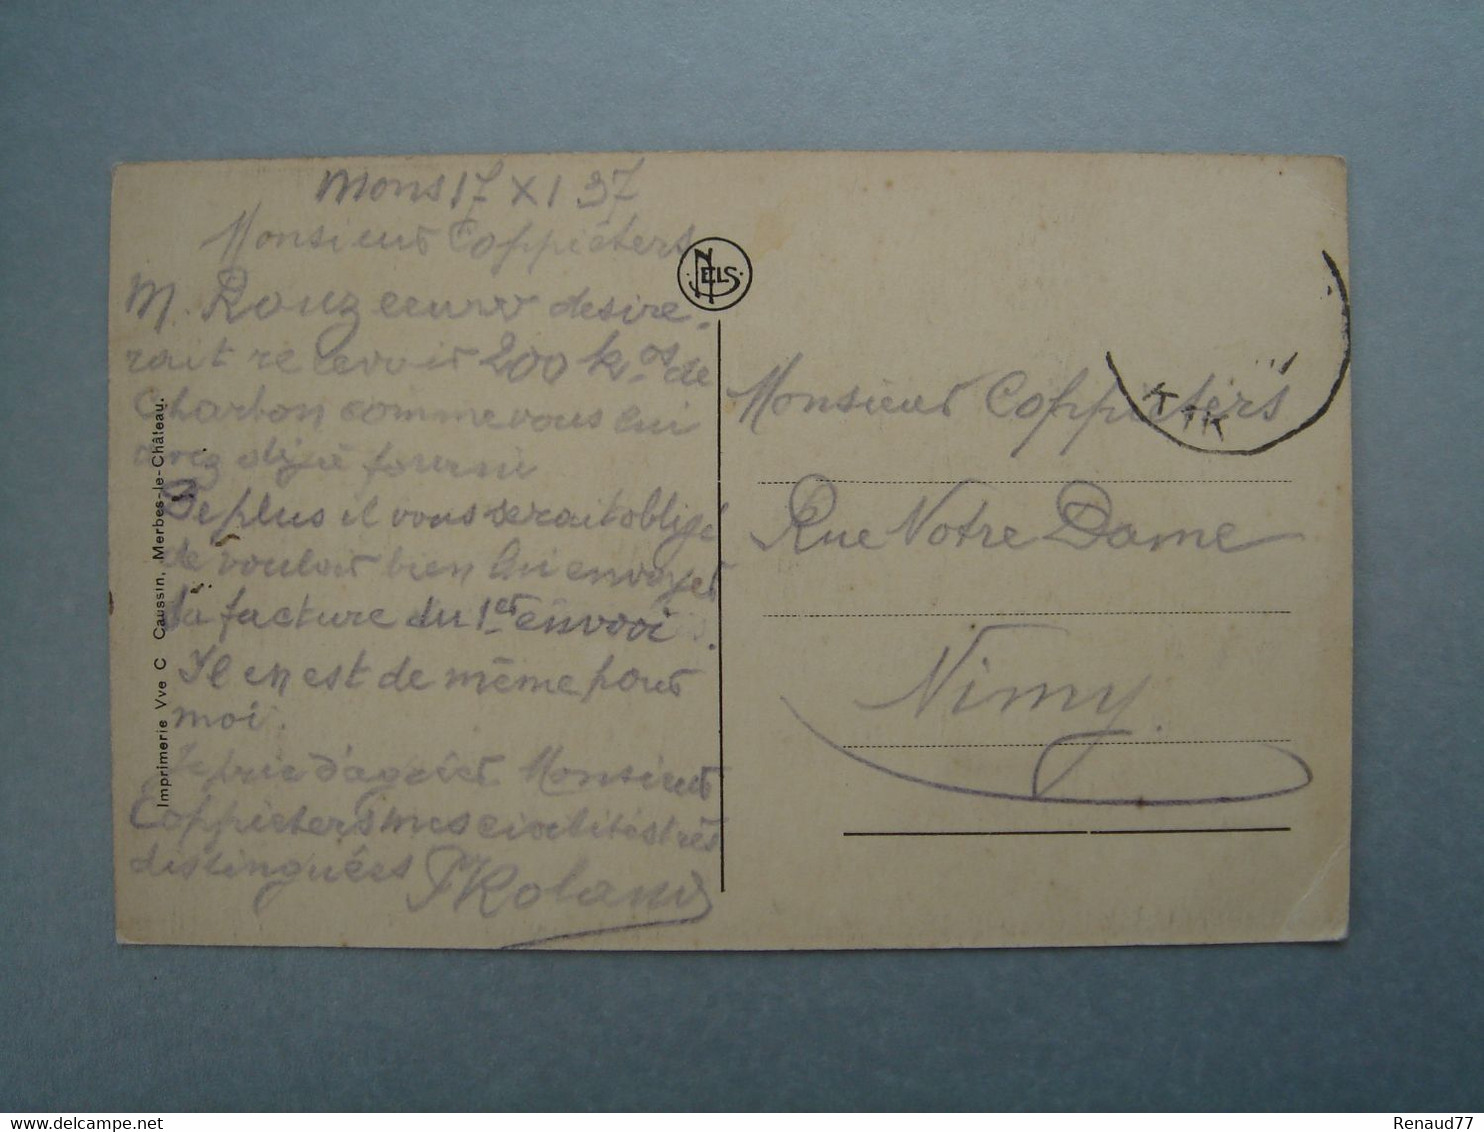 Mons 17 XI 37
Monsieur Coppiéters
M. désire-
rait recevoir 200 k.os de
Charbon comme vous lui
avez déjà fourni
De plus il vous serait obligé
de vouloir bien lui envoyer
la facture du 1er envoi.
Il en est de même pour
moi.
Je prie d'agréer Monsieur
Coppieters mes civilités très
distinguées Roland
Imprimerie Vve C Caussin, Merbes-le-Château.
NELS
Monsieur Coppieters
Rue Notre Dame
Nimy
Renaud77
delcampe.net